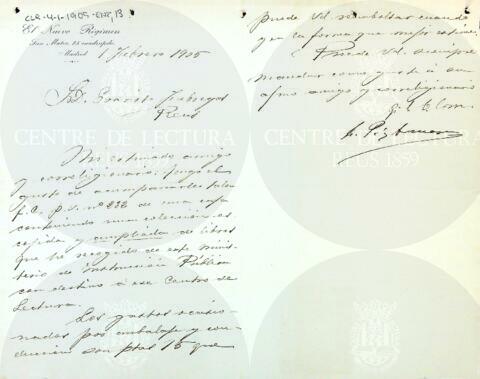 CLR-4-1-1905-ENT 13
El Nuevo Régimen
San Mateo, 18 cuadrupdo.
Madrid
1 Febrero 1905
Sr. D. Evaristo Fábregas
Reus
Mi estimado amigo
y correligionario: tengo el
gusto de acompañarle talon
f. c. p. v. nº 838 de una caja
conteniendo una colección es
cogida y ampliada de libros
que he recogido de este minis
terio de Instrucción Pública
con destino á ese Centro de
Lectura.
Los gastos ocasio
nados por embalaje y con
ducción son ptas 15 que
puede Vd. reembolsar cuando
y en la forma que mejor estime.
Puede Vd. siempre
mandar como guste á su
afmo amigo y correligionario
q. l. b. l. m.
CENTRE DE LECTURA
REUS 1859
CENTRE DE LECTURA
REUS 1859